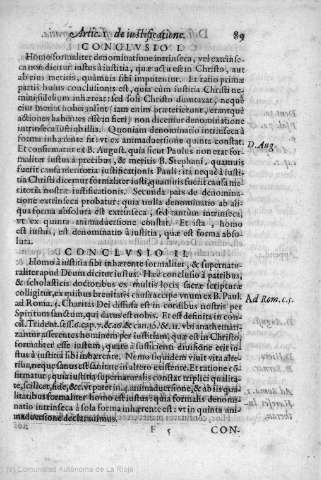 Artic. I. de iustificatione. 89
CONCLVSIO I.
Homo formaliter denominatione intrinseca, vel extrinse-
ca non dicitur iustus à iustitia, quæ actu est in Christo, aut
ab eius meritis, quamuis sibi imputentur. Et ratio primæ
partis huius conclusionis est, quia cum iustitia Christi ne-
mini fidelium inhæreat; sed soli Christo
merita nobis iam enim præterierunt, erantque
actiones habentes esse in fieri) non dicuntur denominatione
intrinseca Quoniam denominatio intrinseca à
forma inhærente fit: vt ex animaduersione quinta constat.
Et confirmatur ex B. August. quia sicut Paulus non erat for-
D. Aug.
maliter iustus à precibus, & meritis B. Stephani, quamuis
fuerit causa meritoria iustificationis Pauli: ita neque à iusti-
tia Christi dicemur formaliter iusti, quamuis fuerit causa me-
ritoria nostræ iustificationis. Secunda pars de denomina-
tione extrinseca probatur: quia nulla denominatio ab ali-
qua forma absoluta est extrinseca, sed tantum intrinseca,
vt ex quinta animaduersione constat. Et ista, homo
est iustus, est denominatio à iustitia, quæ est forma abso-
luta.
CONCLVSIO II.
Homo à iustitia sibi inhærente formaliter, & supernatu-
raliter apud Deum dicitur iustus. Hæc conclusio à patribus,
& scholasticis doctoribus ex multis locis sacræ scripturæ
colligitur, ex quibus breuitatis causa accipe vnum ex B. Paul.
ad Roma. 5. Charitas Dei diffusa est in cordibus nostris per
Ad Rom. c. 5.
Spiritum sanctum, qui datus est nobis. Et est definita in con-
cil. Trident. sess. 6. cap. 7. & & can. 10. & 11. vbi anathemati-
zantur asserentes hominem per iustitiam, quæ est in Christo,
formaliter esse iustum, quare à iustitia
tus à iustitia sibi inhærente. Nemo siquidem viuit vita alte-
rius, neque sanus est sanitate in altero existente. Et ratione có
firmatur, quia iustitia supernaturalis constat triplici qualita-
te, scilicet, fide, & c. vt patet in 4. animaduersione, & ab iis qua-
litatibus formaliter homo est iustus: quia formalis denomi-
natio intrinseca à sola forma inhærente est: vt in quinta ani-
maduersione declarauimus.
F 5 CON-
(c) Comunidad Autónoma de La Rioja